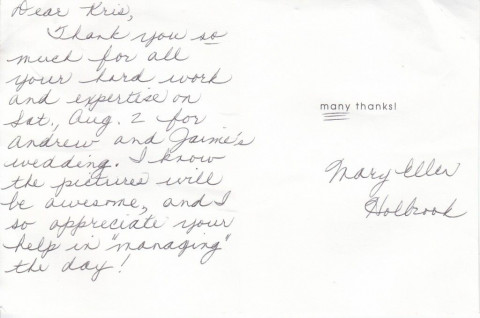 Dear Kris,
Thank you so
much for all
your hard work
and expertise on
Sat., Aug. 2 for
Andrew and Jaime's
wedding. I know
the pictures will
be awesome, and I
so appreciate your
help in "managing"
the day!
many thanks!
Mary Ellen
Holbrook